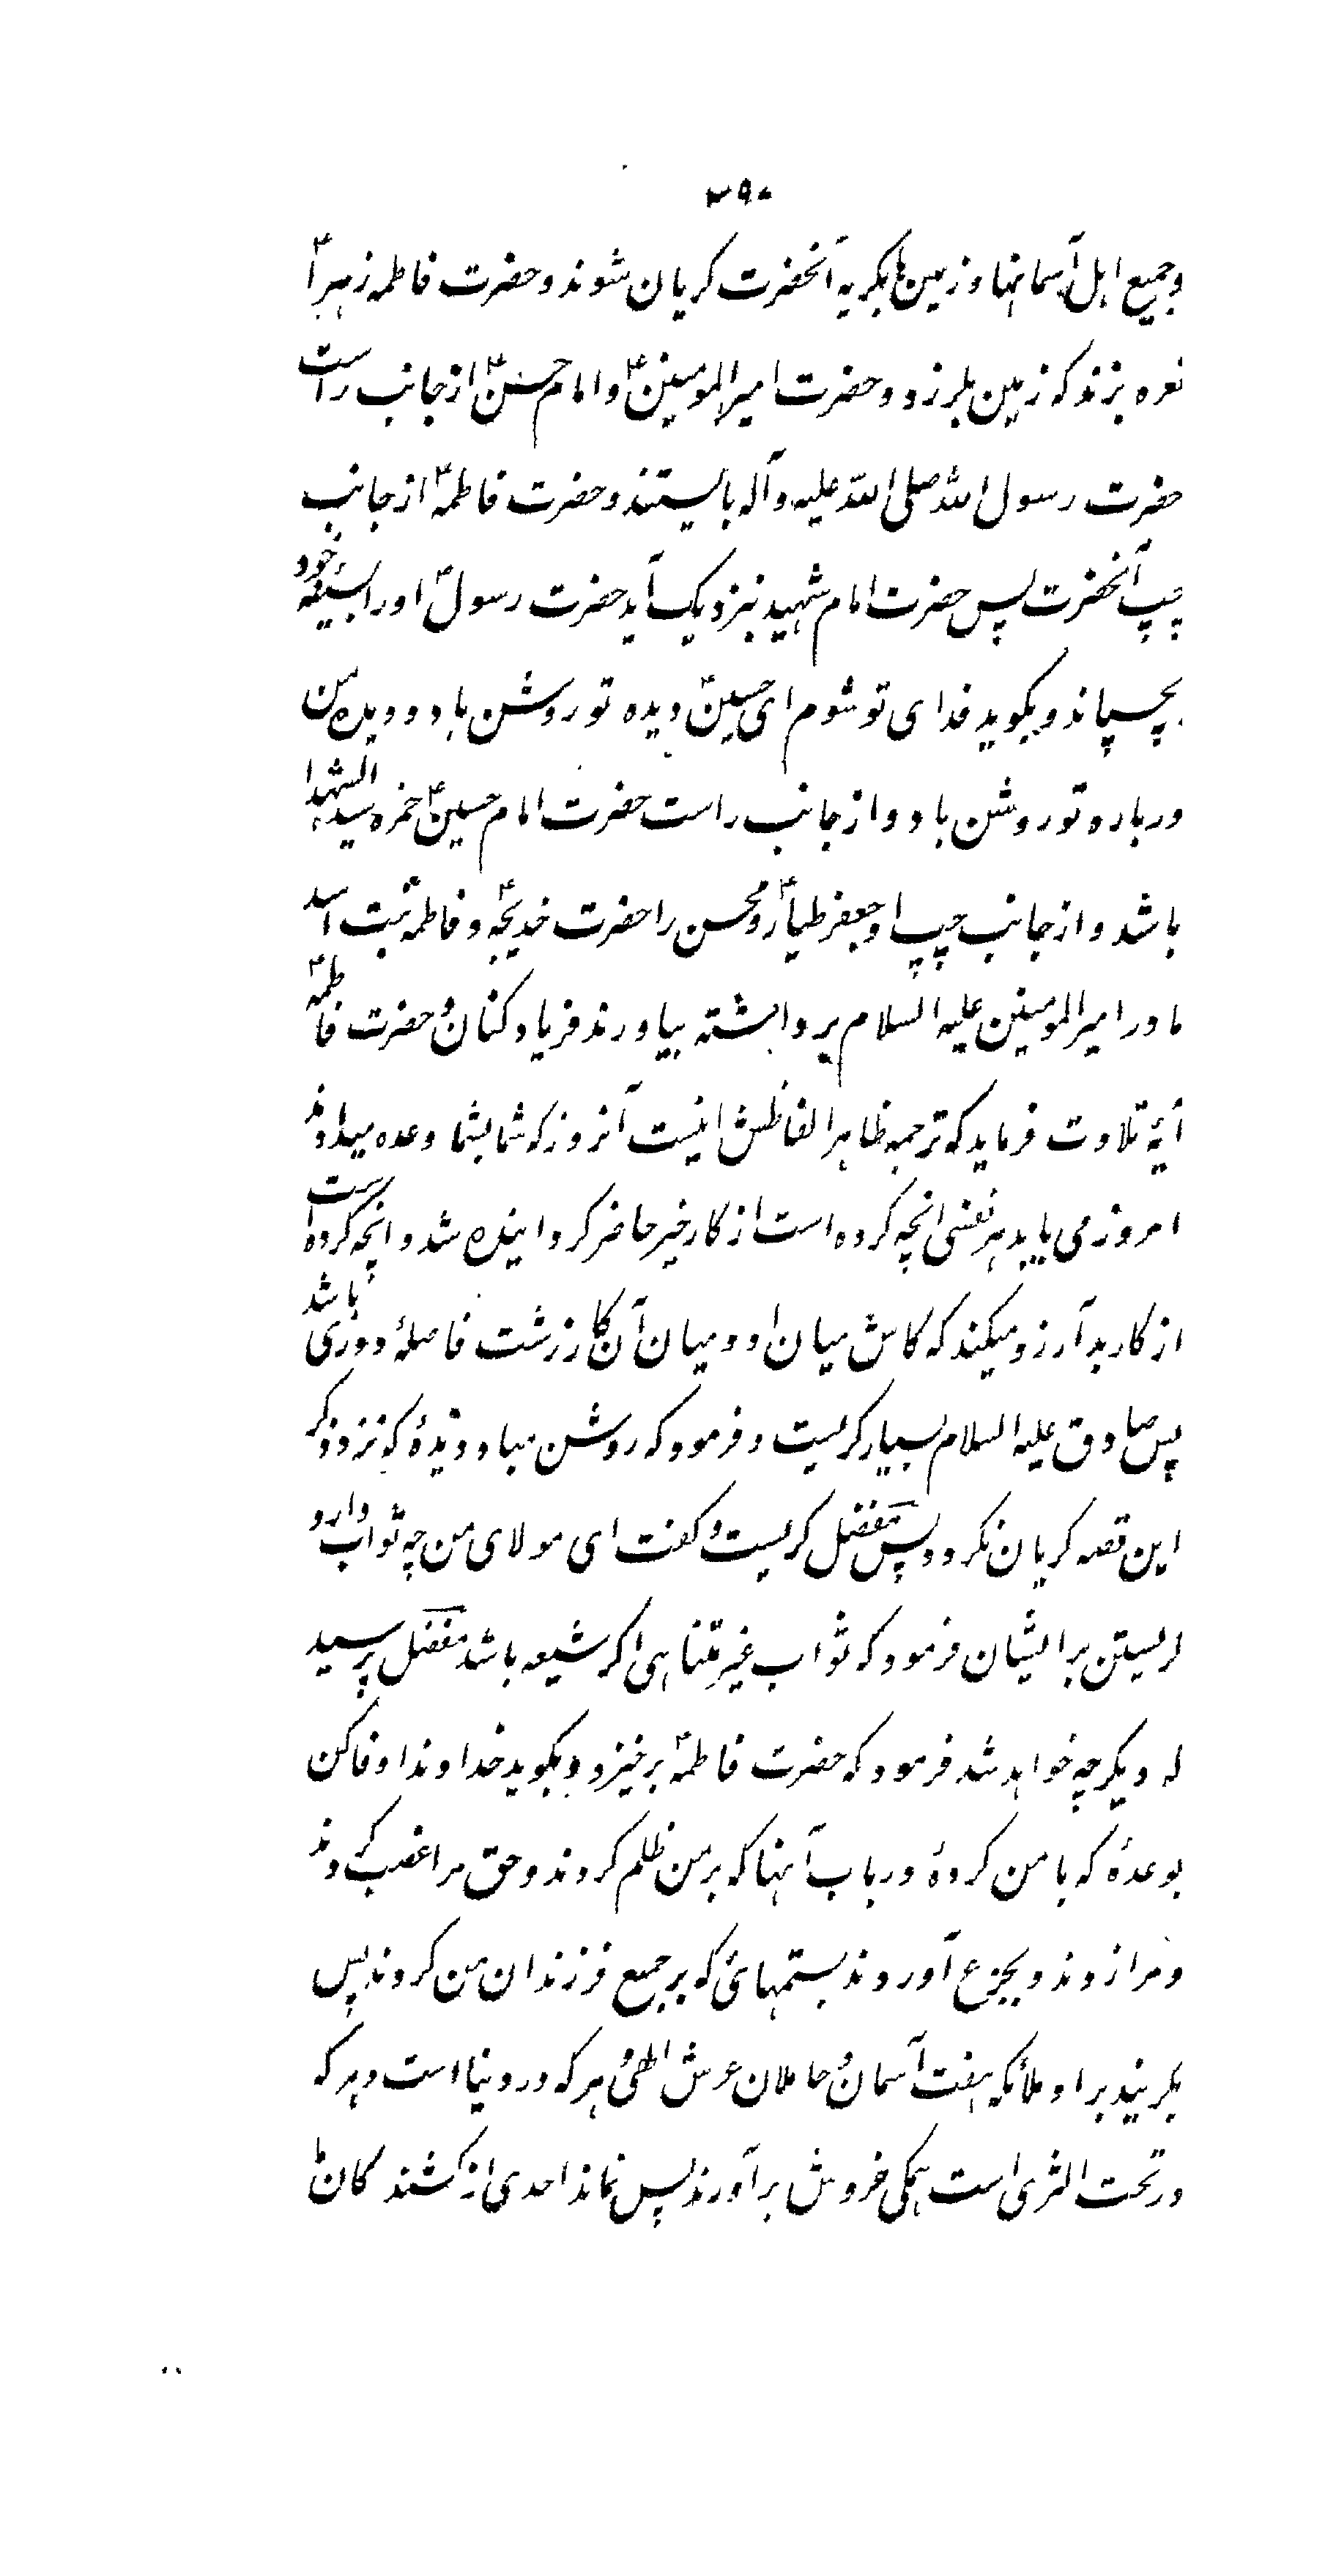 ۳۹۰
وجمیع اہل آسمانها و زمین ها بگریه آنحضرت گریان شوند و حضرت فاطمه زہرا ؑ
نعره بزند که زمین بلرزد و حضرت امیرالمومنین ؑ و امام حسن ؑ از جانب راست
حضرت رسول الله صلی الله علیه وآله بایستند و حضرت فاطمه ؑ از جانب
چپ آنحضرت پس حضرت امام شهید نزدیک آید حضرت رسول ؑ او را بسینه خود
بچسپاند و بگوید فدای تو شوم ای حسین ؑ دیده تو روشن باد و دیده من
درباره تو روشن باد و از جانب راست حضرت امام حسین ؑ حمزه سید الشهدا
باشد و از جانب چپ او جعفر طیار ؑ و محسن را حضرت خدیجه ؑ و فاطمه بنت اسد
مادر امیرالمومنین علیه السلام برداشته بیاورند فریاد کنان و حضرت فاطمه ؑ
آیهٔ تلاوت فرماید که ترجمه ظاہر الفاظش اینست آنروز که شما بشما وعده میدادند
امروز می یابد ہر نفسی انچه کرده است از کار خیر حاضر گردانیده شد و انچه کرده است
از کار بد آرزو میکند که کاش میان او و میان آن کار زشت فاصلهٔ دوری باشد
پس صادق علیه السلام بسیار گریست و فرمود که روشن مباد دیدهٔ که نزد ذکر
این قصه گریان نگردد پس مفضل گریست و گفت ای مولای من چه ثواب دارد
گریستن بر ایشان فرمود که ثواب غیر متناہی اگر شیعه باشد مفضل پرسید
که دیگر چه خواہد شد فرمود که حضرت فاطمه ؑ برخیزد و بگوید خداوندا وفا کن
بوعدهٔ که با من کردهٔ در باب آنہا که بر من ظلم کردند و حق مرا غصب کردند
و مرا زدند و بجزع آوردند بستمهائی که بر جمیع فرزندان من کردند پس
بگریند بر او ملائکه ہفت آسمان و حاملان عرش الهی و ہر که در دنیا است و ہر که
در تحت الثری است ہمگی خروش برآورند پس نماند احدی از کشندگان ما